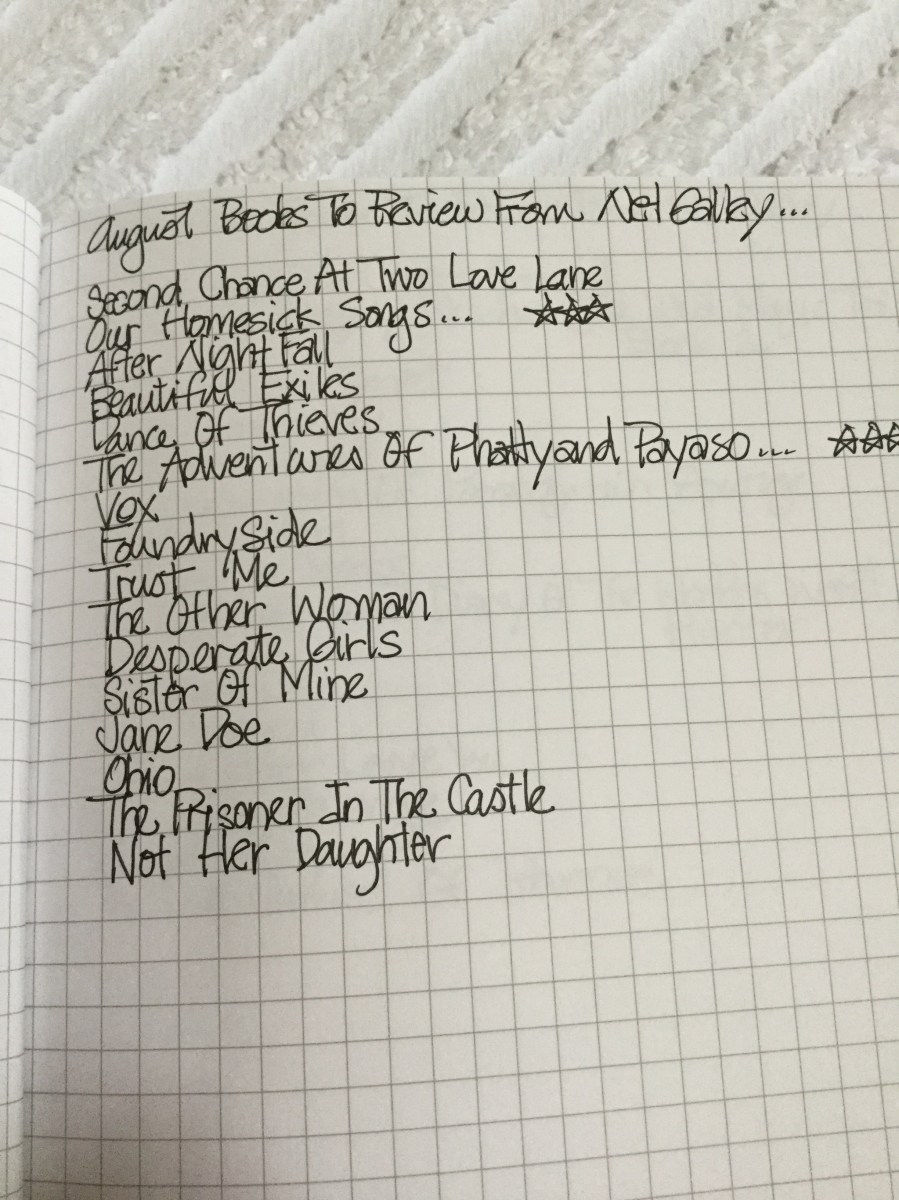 August Books To Review From Net Galley...
Second Chance At Two Love Lane
Our Homesick Songs... ☆☆☆
After Night Fall
Beautiful Exiles
Dance Of Thieves
The Adventures Of Phatty and Payaso... ☆☆☆
Vox
Foundryside
Trust Me
The Other Woman
Desperate Girls
Sister Of Mine
Jane Doe
Ohio
The Prisoner In The Castle
Not Her Daughter